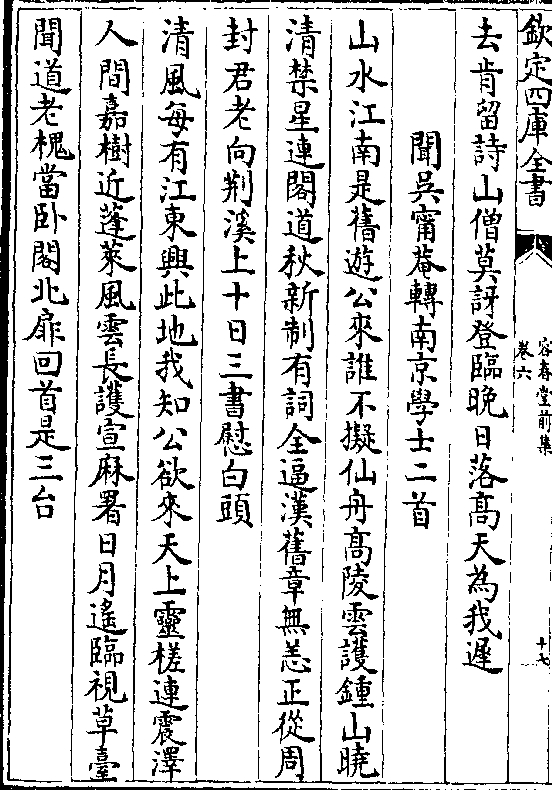 欽定四庫全書
容春堂前集
卷六
十七
去肯留詩山僧莫訝登臨晚日落高天為我遲
聞吳甯菴轉南京學士二首
山水江南是舊遊公來誰不擬仙舟高陵雲護鍾山曉
清禁星連閣道秋新制有詞全逼漢舊章無恙正從周
封君老向荆溪上十日三書慰白頭
清風每有江東興此地我知公欲來天上靈槎連震澤
人間嘉樹近蓬萊風雲長護宣麻署日月遙臨視草臺
聞道老槐當卧閣北扉回首是三台